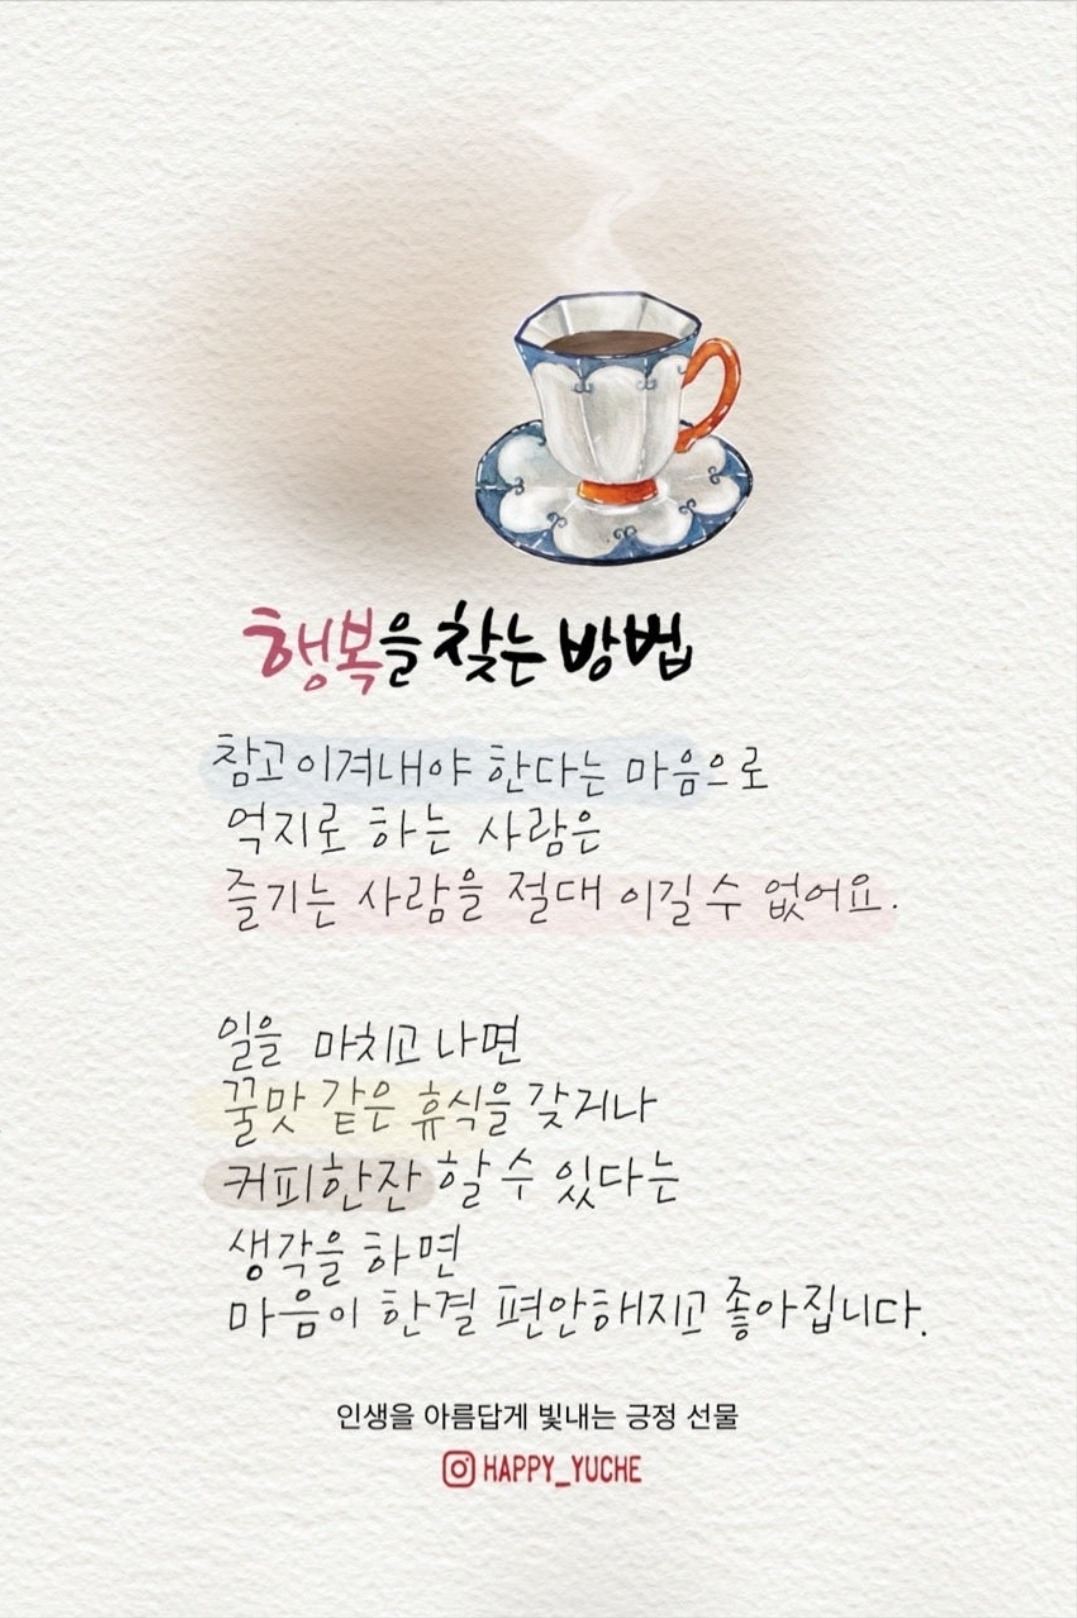 행복을 찾는 방법
참고 이겨내야 한다는 마음으로
억지로 하는 사람은
즐기는 사람을 절대 이길 수 없어요.
일을 마치고 나면
꿀맛 같은 휴식을 갖거나
커피한잔 할 수 있다는
생각을 하면
마음이 한결 편안해지고 좋아집니다.
인생을 아름답게 빛내는 긍정 선물
HAPPY_YUCHE